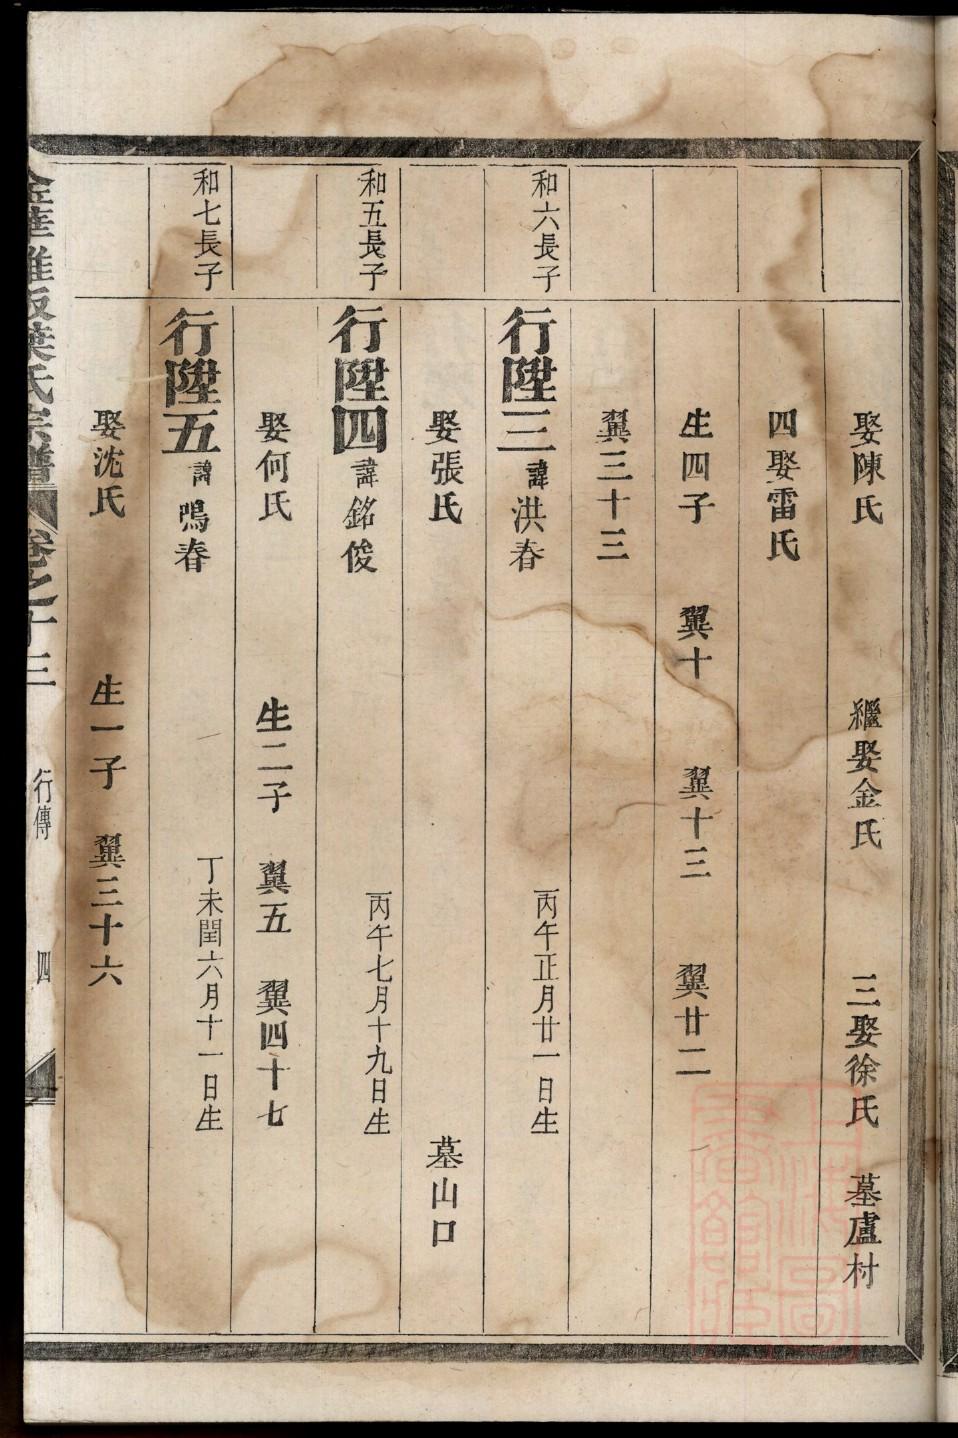 娶陳氏 繼娶金氏 三娶徐氏 墓盧村
四娶雷氏
生四子 翼十 翼十三 翼廿二
翼三十三
和六長子
行陞三 諱洪春 丙午正月廿一日生
娶張氏 墓山口
和五長子
行陞四 諱銘俊 丙午七月十九日生
娶何氏 生二子 翼五 翼四十七
和七長子
行陞五 諱鳴春 丁未閏六月十一日生
娶沈氏 生一子 翼三十六
葉氏宗譜 卷之十三 行傳 四